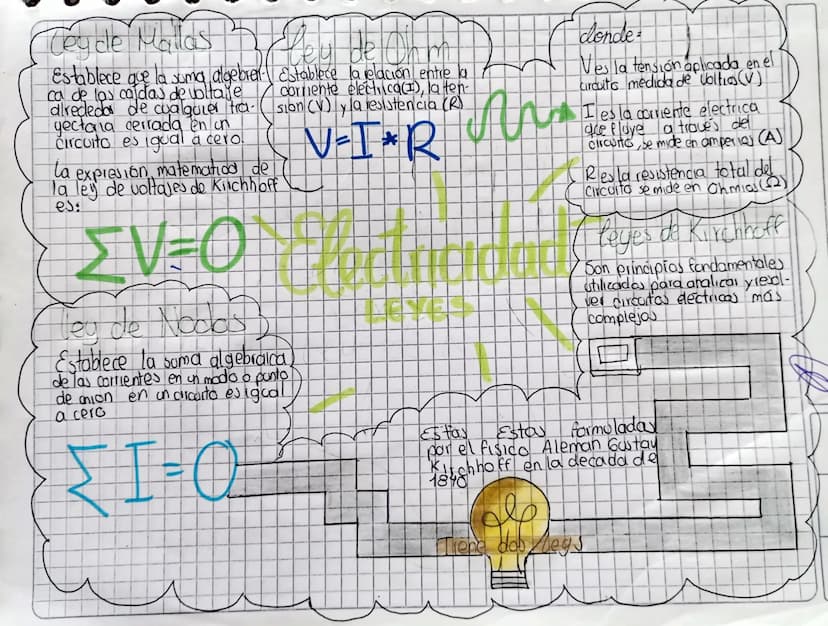 Ley de Mallas
Establece que la suma algebrai-
ca de las caidas de voltaje
alrededor de cualquier tra-
yectoria cerrada en un
circuito es igual a cero.
La expresión matematica de
la ley de voltajes de Kirchhoff
es:
ΣV=0
Ley de Ohm
Establece la relación entre la
corriente eléctrica(I), la ten-
sion(V) y la resistencia(R)
V=I*R
donde:
V es la tensión aplicada en el
circuito medida de voltios(V)
I es la corriente electrica
que fluye a través del
circuito, se mide en amperias(A)
R es la resistencia total del
circuito se mide en Ohmios(Ω)
Electricidad
LEYES
Leyes de Kirchhoff
Son principios fundamentales
utilizados para analicar y resol-
ver circuitos eléctricos más
complejos
Ley de Nodos
Establece la soma algebraica
de las corrientes en un modo o punto
de union en un circuito es igual
a cero
ΣI=0
Estas Estas formuladas
por el fisico Aleman Gustav
Kirchhoff en la decada de
1840
Tiene dos leys